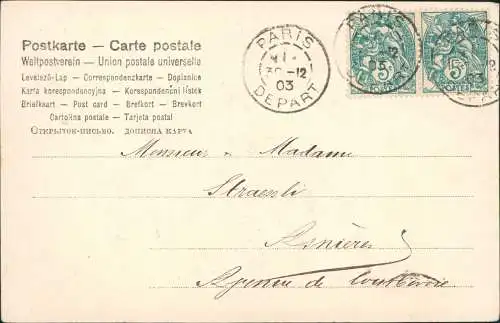 Postkarte – Carte postale
Weltpostverein – Union postale universelle
Levelező-Lap – Correspondenzkarte – Dopisnice
Karta korespondencyjna – Korespondenční lístek
Briefkaart – Post card – Brefkort – Brevkort
Cartolina postale – Tarjeta postal
Открытое-письмо. дописна карта
PARIS
30 -12
03
DEPART
PARIS
12
03
5
5
Monsieur Madame
Asnières
Agence de